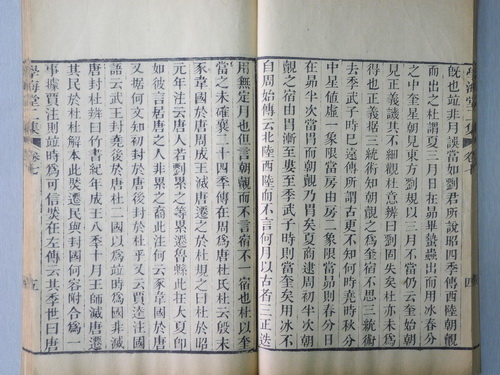 學海堂二集
卷七
四
旣也竝非月誤當如劉君所說昭四季傳西陸朝覿
而出之杜謂夏三月日在昴畢蟄蟲出而用冰春分
之中奎星朝見東方劉規以三月不當亦云奎始朝
見正義議其不細觀杜意辨曰劉固失矣杜亦未為
得也正義据三統術知朝覿之為奎宿不思三統術
中星値虛一象限當房由房二象限當昴則春分日
季武子時巳遠傳所謂古更不知何時堯時秋分
覿之宿由胃漸至婁至季武子時則當奎矣用冰不
當始於周初半次周初日而朝覿乃胃矣夏商逮周初半次朝
自周始傳云北陸西陸而不言何月以古者三正迭
用無定月也但言朝覿而不言宿不一宿也杜以奎
當之未確襄二十四季傳在周為唐杜氏杜云殷末
豕韋國於唐周成王滅唐遷之於杜規之曰杜於昭
元年注云唐人若劉累之等累遷魯縣此在大夏卽
如彼言居唐之人非累之裔此注何云豕韋國於唐
又据何文知初封於唐後封於杜乎又云賈逵注國
語云武王封堯後於唐杜二國以為竝時為國非滅
唐封杜辨曰竹書紀年成王八季十月王師滅唐遷
其民於杜杜解本此奘遷民與封國何容附合為一
事據賈注則竝時為可信奘在左傳云其季世曰唐
學海堂二集
卷七
五